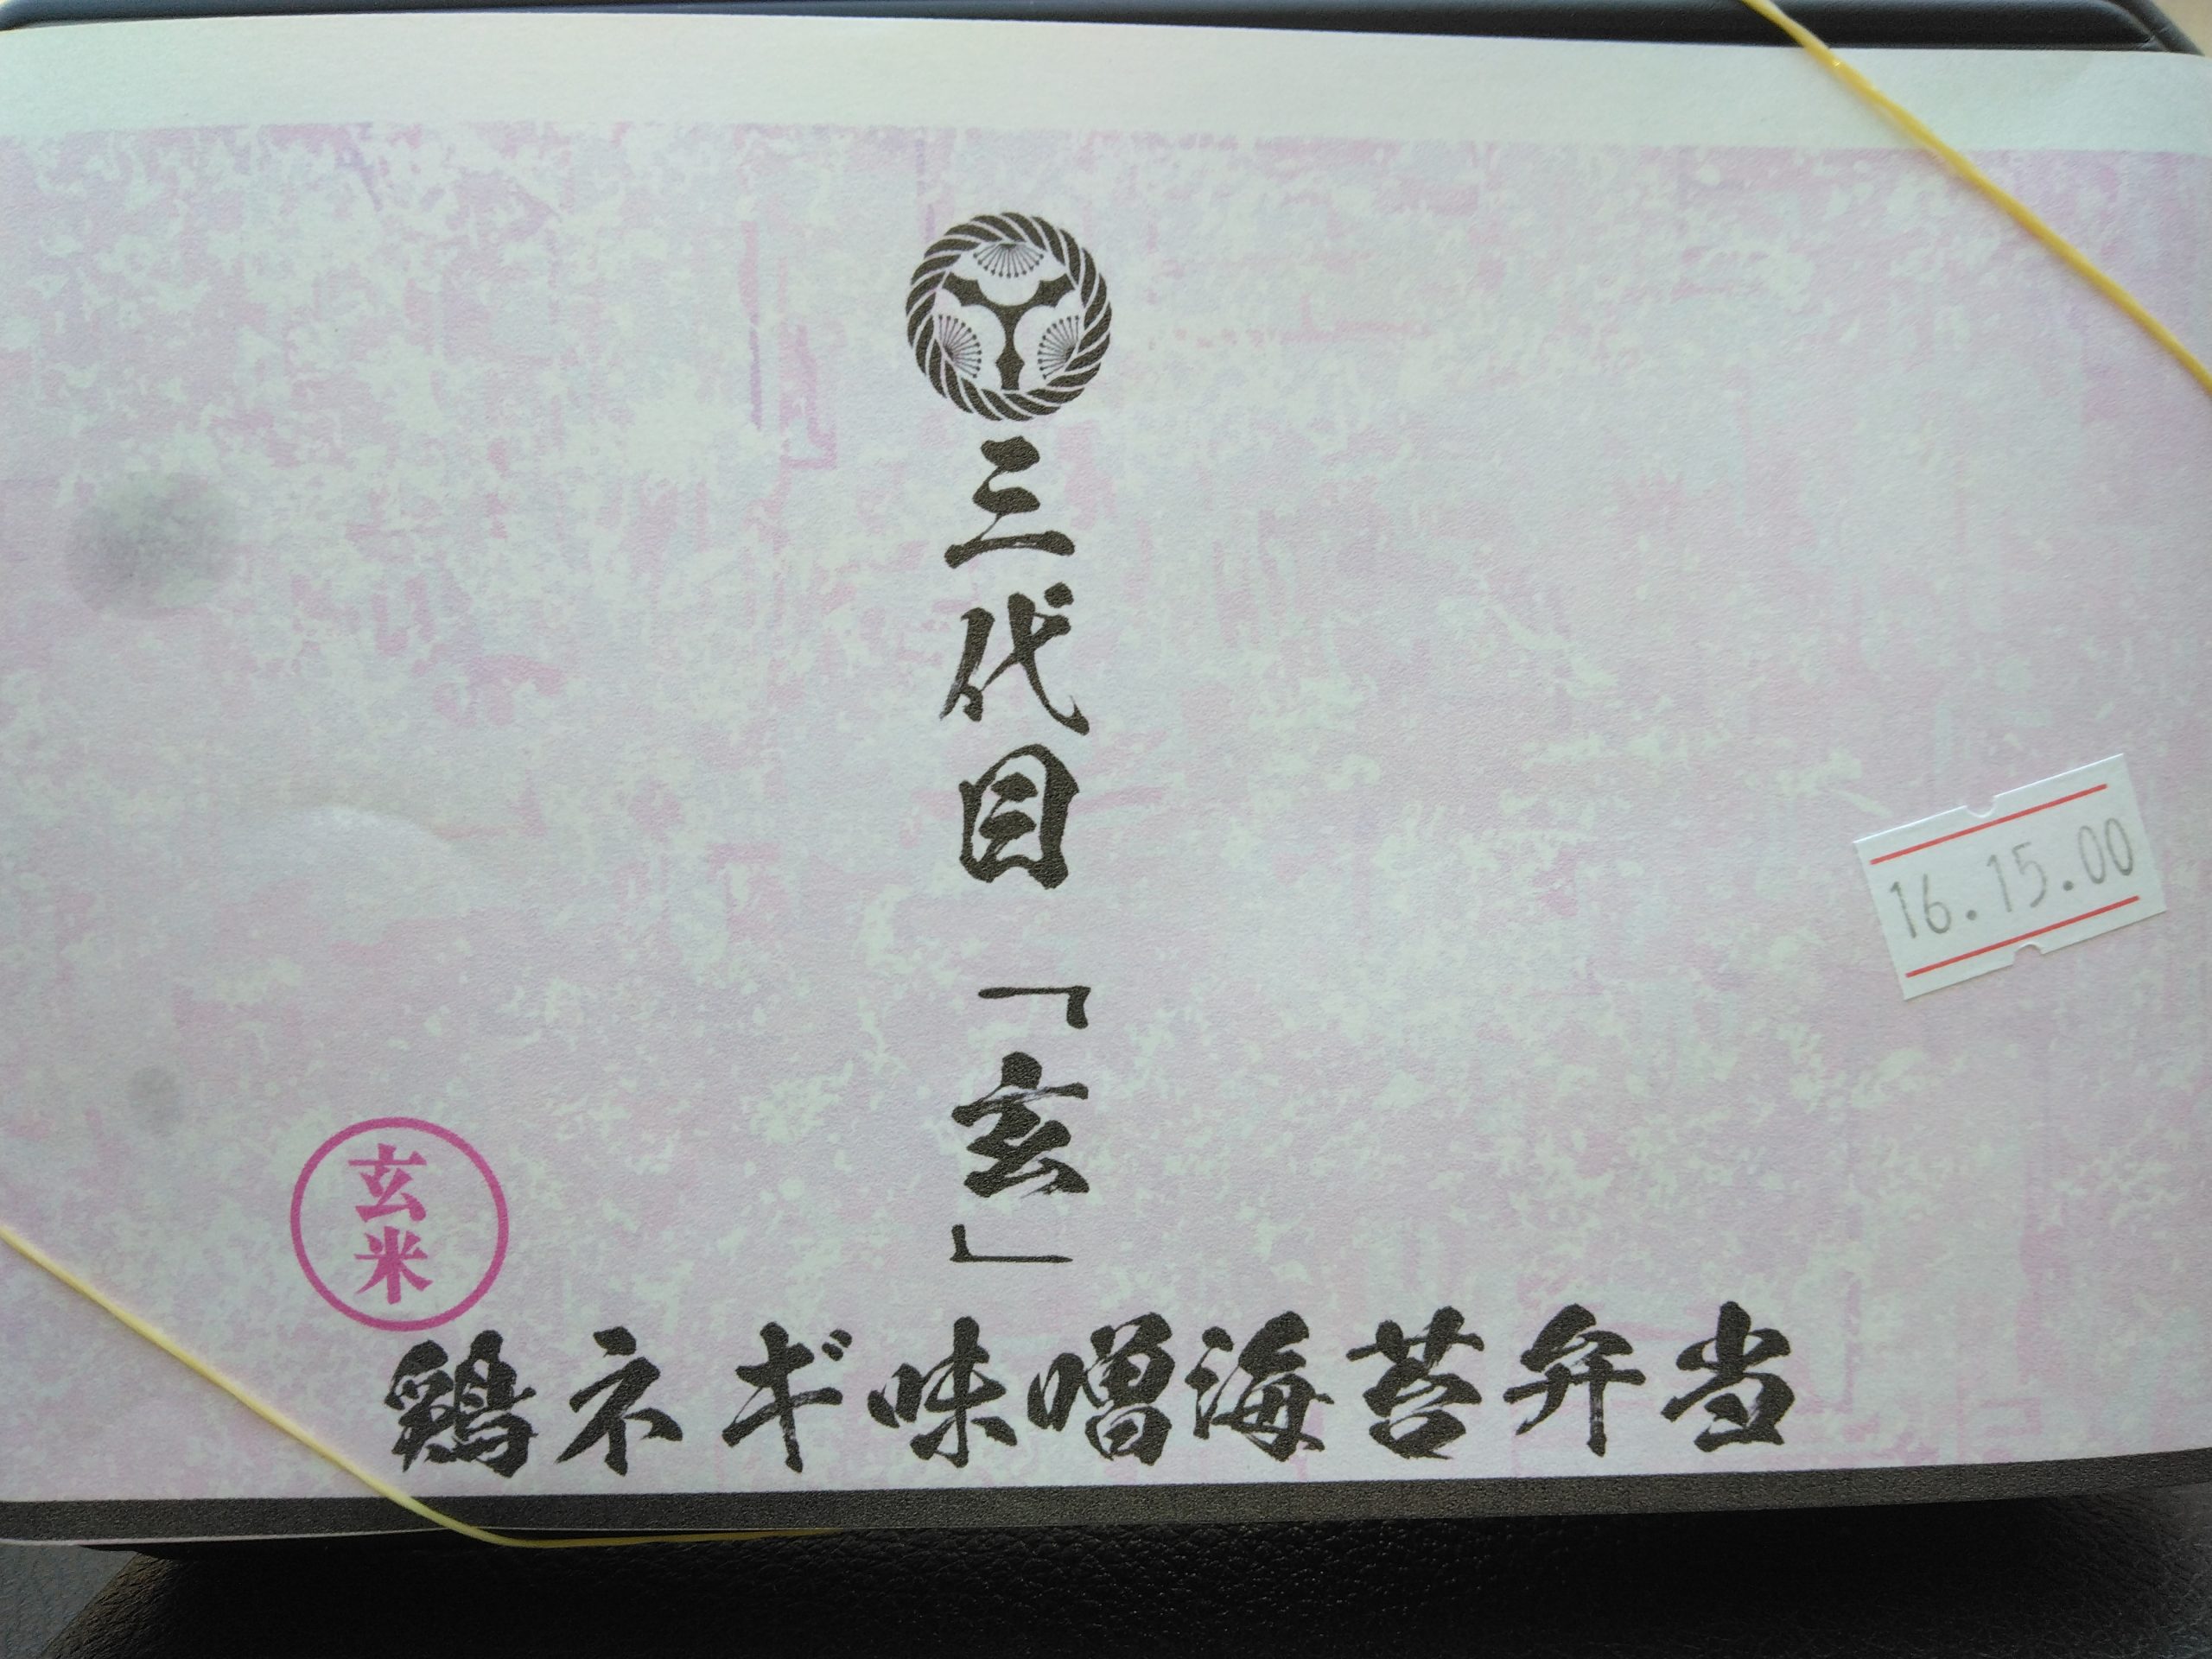 三代目「玄」
16.15.00
玄米
鶏ネギ味噌海苔弁当